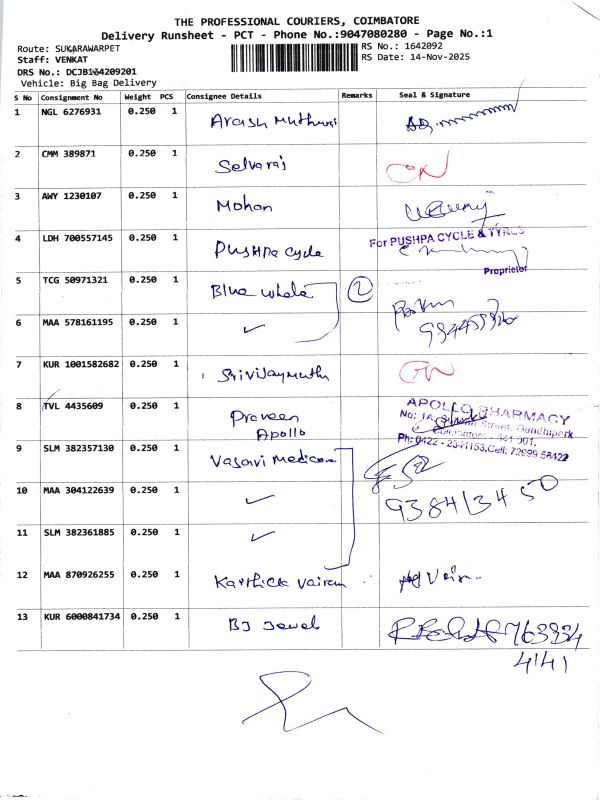 THE PROFESSIONAL COURIERS, COIMBATORE
Delivery Runsheet - PCT - Phone No.:9047080280 - Page No.:1
Route: SUKARAWARPET
RS No.: 1642092
Staff: VENKAT
RS Date: 14-Nov-2025
DRS No.: DCJB164209201
Vehicle: Big Bag Delivery
S No Consignment No Weight PCS Consignee Details Remarks Seal & Signature
1 NGL 6276931 0.250 1 Arash Muthuus
2 CMM 389871 0.250 1 Selvaraj
3 AWY 1230107 0.250 1 Mohan
4 LDH 700557145 0.250 1 Pushpa cycle For PUSHPA CYCLE & TYRES
Proprietor
5 TCG 50971321 0.250 1 Blue whale 2
6 MAA 578161195 0.250 1 ✓
7 KUR 1001582682 0.250 1 Srivijaymuthu
8 TVL 4435609 0.250 1 Praveen Apollo
APOLLO PHARMACY
No: 1A, Street, Gandhipark
Coimbatore - 641 001.
Ph: 0422 - 2341153, Cell: 72999 56422
9 SLM 382357130 0.250 1 Vasavi Medicare
10 MAA 304122639 0.250 1 ✓ 938413450
11 SLM 382361885 0.250 1 ✓
12 MAA 870926255 0.250 1 Karthick Vairam
13 KUR 6000841734 0.250 1 BJ Jewel 763934
4141